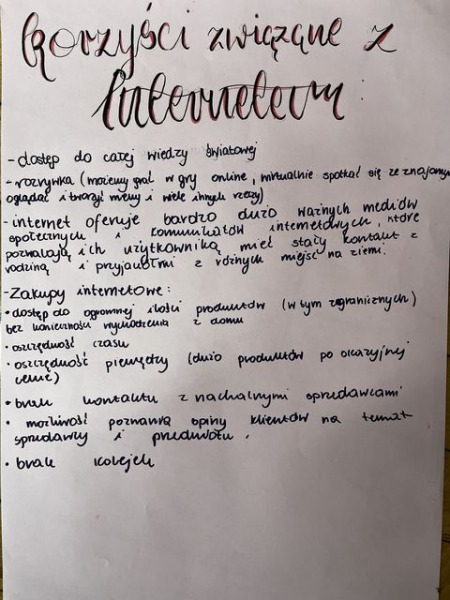 Korzyści związane z
Internetem:
- dostęp do całej wiedzy światowej
- rozrywka (możemy grać w gry online, wirtualnie spotkać się ze znajomymi
oglądać i tworzyć memy i wiele innych rzeczy)
- internet oferuje bardzo dużo ważnych mediów
społecznych i komunikatów internetowych, które
pozwalają ich użytkowniką mieć stały kontakt z
rodziną i przyjaciółmi z różnych miejsc na ziemi.
- Zakupy internetowe:
• dostęp do ogromnej ilości produktów (w tym zgranicznych)
bez konieczności wychodzenia z domu
• oszczędność czasu
• oszczędność pieniędzy (dużo produktów po okazyjnej
cenie)
• brak kontaktu z nachalnymi sprzedawcami
• możliwość poznania opiny klientów na temat
sprzedawcy i przedmiotu.
• brak kolejek